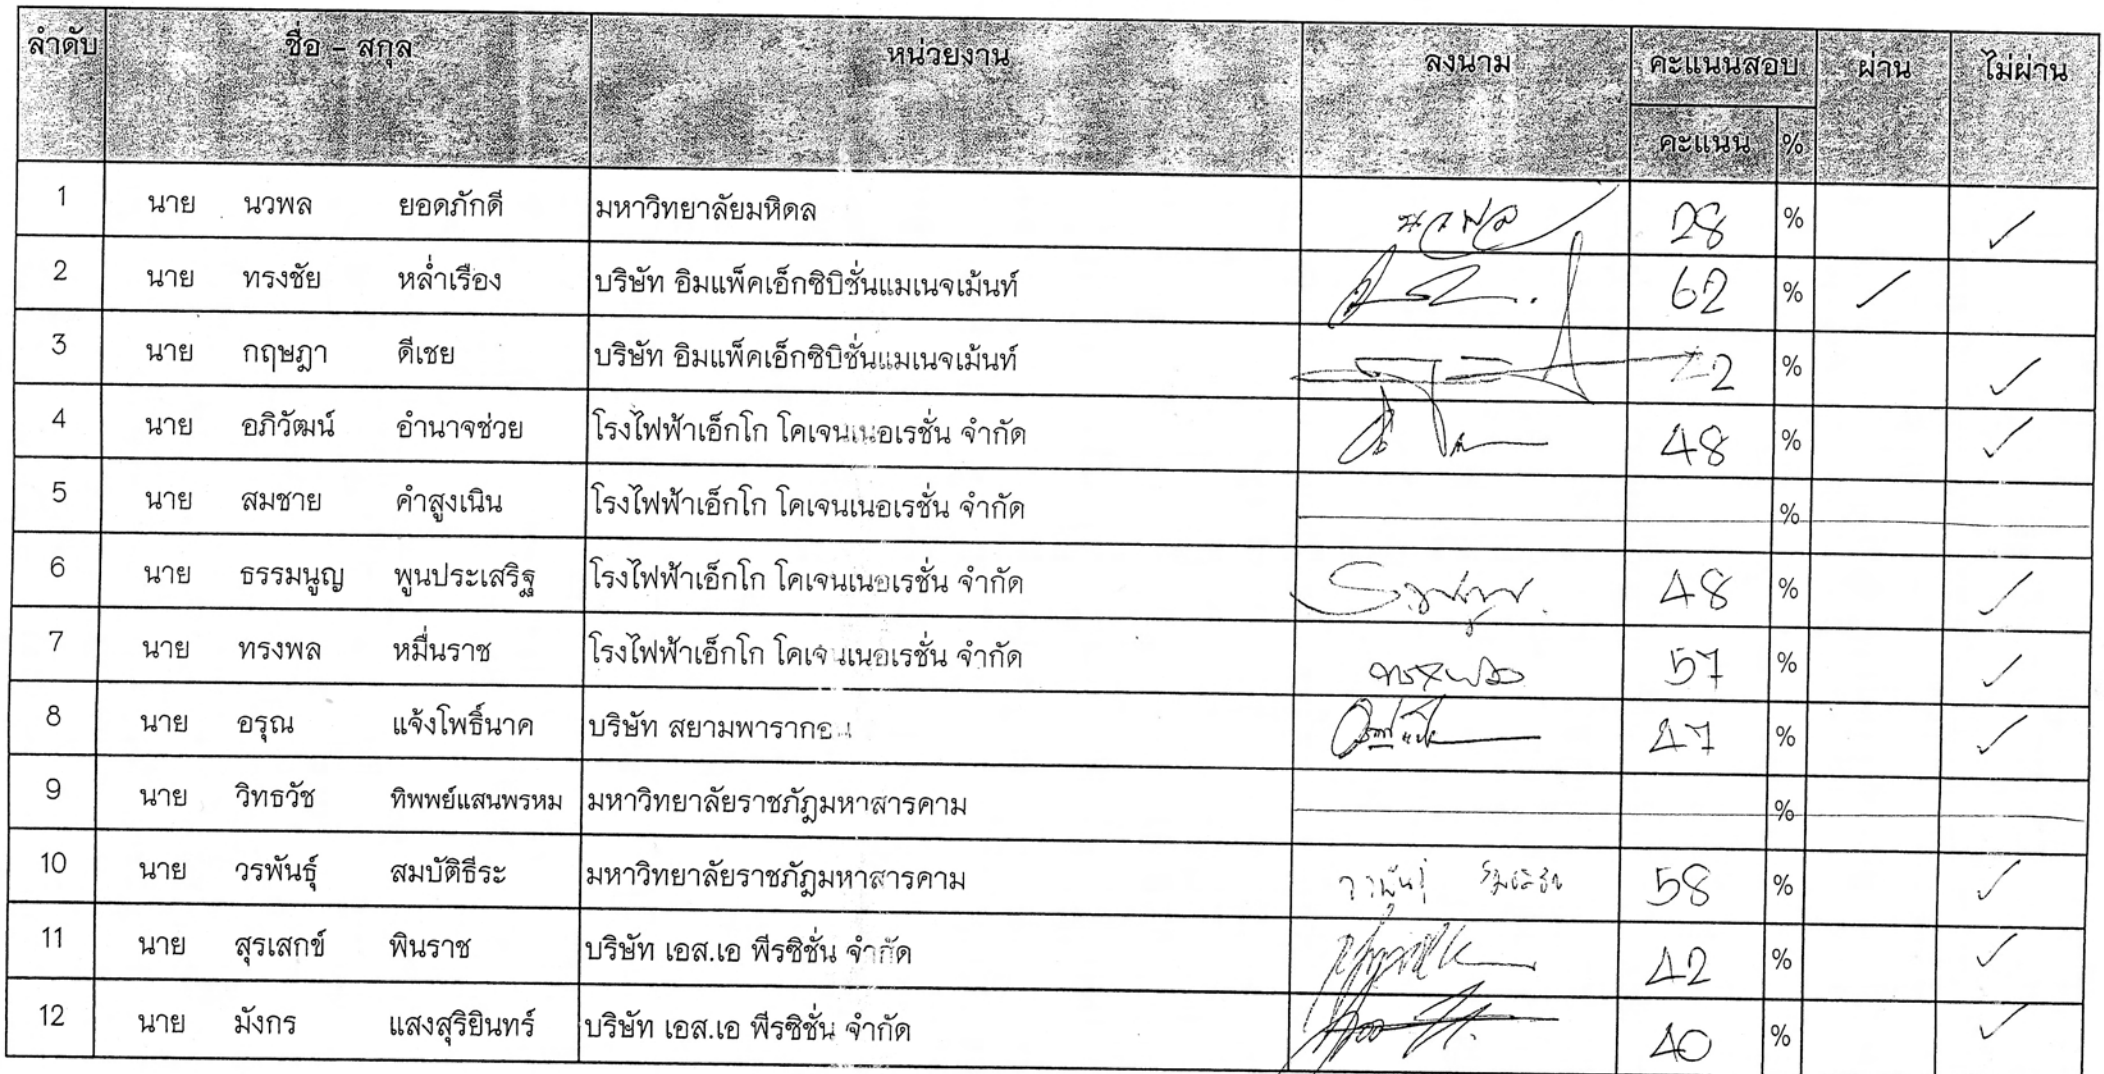 ลำดับ ชื่อ - สกุล หน่วยงาน ลงนาม คะแนนสอบ ผ่าน ไม่ผ่าน
คะแนน %
1 นาย นวพล ยอดภักดี มหาวิทยาลัยมหิดล นวพล 28 % ✓
2 นาย ทรงชัย หล่ำเรือง บริษัท อิมแพ็คเอ็กซิบิชั่นแมเนจเม้นท์ 62 % ✓
3 นาย กฤษฎา ดีเชย บริษัท อิมแพ็คเอ็กซิบิชั่นแมเนจเม้นท์ % ✓
4 นาย อภิวัฒน์ อำนาจช่วย โรงไฟฟ้าเอ็กโก โคเจนเนอเรชั่น จำกัด 48 % ✓
5 นาย สมชาย คำสูงเนิน โรงไฟฟ้าเอ็กโก โคเจนเนอเรชั่น จำกัด %
6 นาย ธรรมนูญ พูนประเสริฐ โรงไฟฟ้าเอ็กโก โคเจนเนอเรชั่น จำกัด 48 % ✓
7 นาย ทรงพล หมื่นราช โรงไฟฟ้าเอ็กโก โคเจนเนอเรชั่น จำกัด ทรงพล 57 % ✓
8 นาย อรุณ แจ้งโพธิ์นาค บริษัท สยามพารากอน 47 % ✓
9 นาย วิทธวัช ทิพพย์แสนพรหม มหาวิทยาลัยราชภัฏมหาสารคาม %
10 นาย วรพันธุ์ สมบัติธีระ มหาวิทยาลัยราชภัฏมหาสารคาม วรพันธุ์ 58 % ✓
11 นาย สุรเสกข์ พินราช บริษัท เอส.เอ พีรซิชั่น จำกัด 42 % ✓
12 นาย มังกร แสงสุริยินทร์ บริษัท เอส.เอ พีรซิชั่น จำกัด 40 % ✓